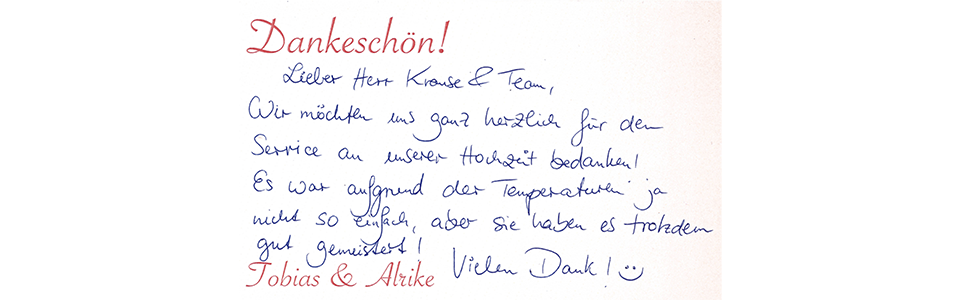 Dankeschön!
Lieber Herr Krause & Team,
Wir möchten uns ganz herzlich für den
Service an unserer Hochzeit bedanken!
Es war aufgrund der Temperaturen ja
nicht so einfach, aber sie haben es trotzdem
gut gemeistert!
Vielen Dank! :)
Tobias & Alrike